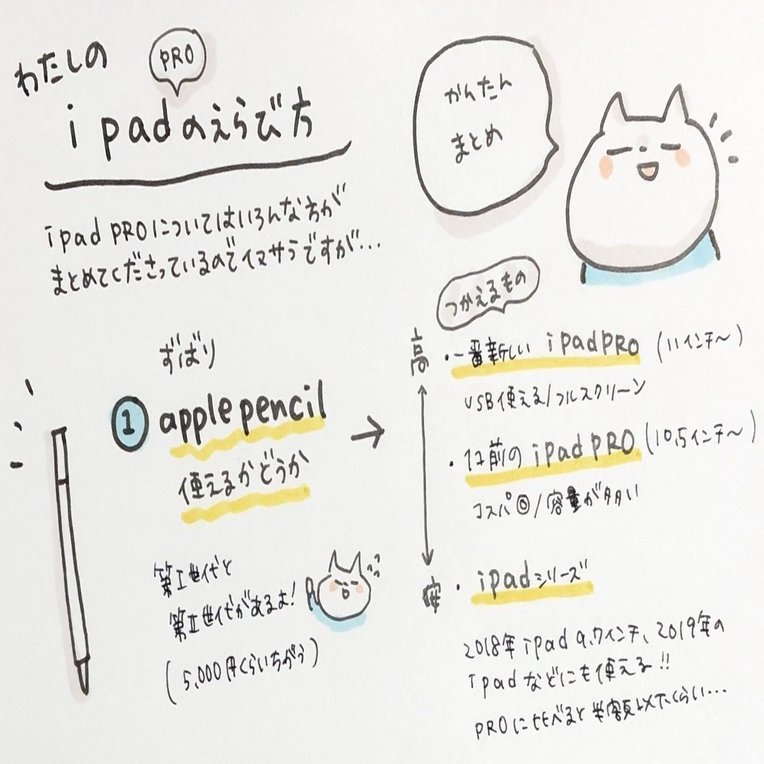 わたしの
PRO
ipadのえらび方
かんたん
まとめ
ipad PROについてはいろんな方が
まとめてくださっているのでイマサラですが…
ずばり
① apple pencil
使えるかどうか
第Ⅰ世代と
第Ⅱ世代があるよ!
(5,000円くらいちがう)
つかえるもの
高
・一番新しい ipad PRO (11インチ〜)
USB使える/フルスクリーン
・1コ前の ipad PRO (10.5インチ〜)
コスパ◎/容量が多い
安
・ipadシリーズ
2018年ipad 9.7インチ、2019年の
ipadなどにも使える!!
PROに比べると半額以下くらい…